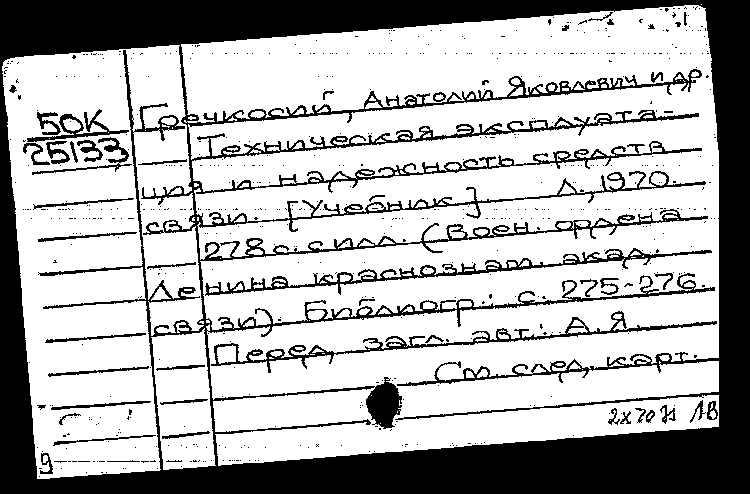 БОК
25133
Гречкосий, Анатолий Яковлевич и др.
Техническая эксплуата-
ция и надежность средств
связи. [Учебник] Л., 1970.
278 с. с илл. (Воен. ордена
Ленина краснознам. акад.
связи). Библиогр.: с. 275-276.
Перед загл. авт.: А.Я.
См. след. карт.
9